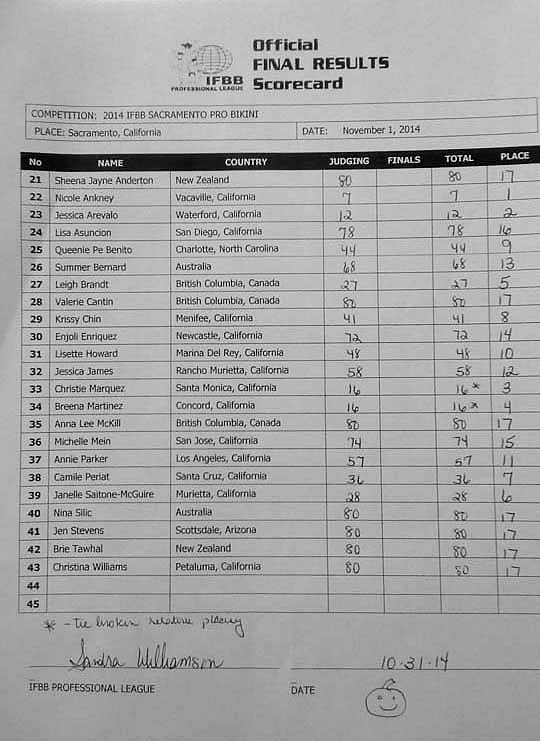 Official
FINAL RESULTS
Scorecard
IFBB
PROFESSIONAL LEAGUE
COMPETITION: 2014 IFBB SACRAMENTO PRO BIKINI
PLACE: Sacramento, California DATE: November 1, 2014
No NAME COUNTRY JUDGING FINALS TOTAL PLACE
21 Sheena Jayne Anderton New Zealand 80 80 17
22 Nicole Ankney Vacaville, California 7 7 1
23 Jessica Arevalo Waterford, California 12 12 2
24 Lisa Asuncion San Diego, California 78 78 16
25 Queenie Pe Benito Charlotte, North Carolina 44 44 9
26 Summer Bernard Australia 68 68 13
27 Leigh Brandt British Columbia, Canada 27 27 5
28 Valerie Cantin British Columbia, Canada 80 80 17
29 Krissy Chin Menifee, California 41 41 8
30 Enjoli Enriquez Newcastle, California 72 72 14
31 Lisette Howard Marina Del Rey, California 48 48 10
32 Jessica James Rancho Murietta, California 58 58 12
33 Christie Marquez Santa Monica, California 16 16* 3
34 Breena Martinez Concord, California 16 16* 4
35 Anna Lee McKill British Columbia, Canada 80 80 17
36 Michelle Mein San Jose, California 74 74 15
37 Annie Parker Los Angeles, California 57 57 11
38 Camile Periat Santa Cruz, California 36 36 7
39 Janelle Saitone-McGuire Murietta, California 28 28 6
40 Nina Silic Australia 80 80 17
41 Jen Stevens Scottsdale, Arizona 80 80 17
42 Brie Tawhal New Zealand 80 80 17
43 Christina Williams Petaluma, California 80 80 17
44
45
* - tie broken relative placing
Sandra Williamson 10-31-14
IFBB PROFESSIONAL LEAGUE DATE